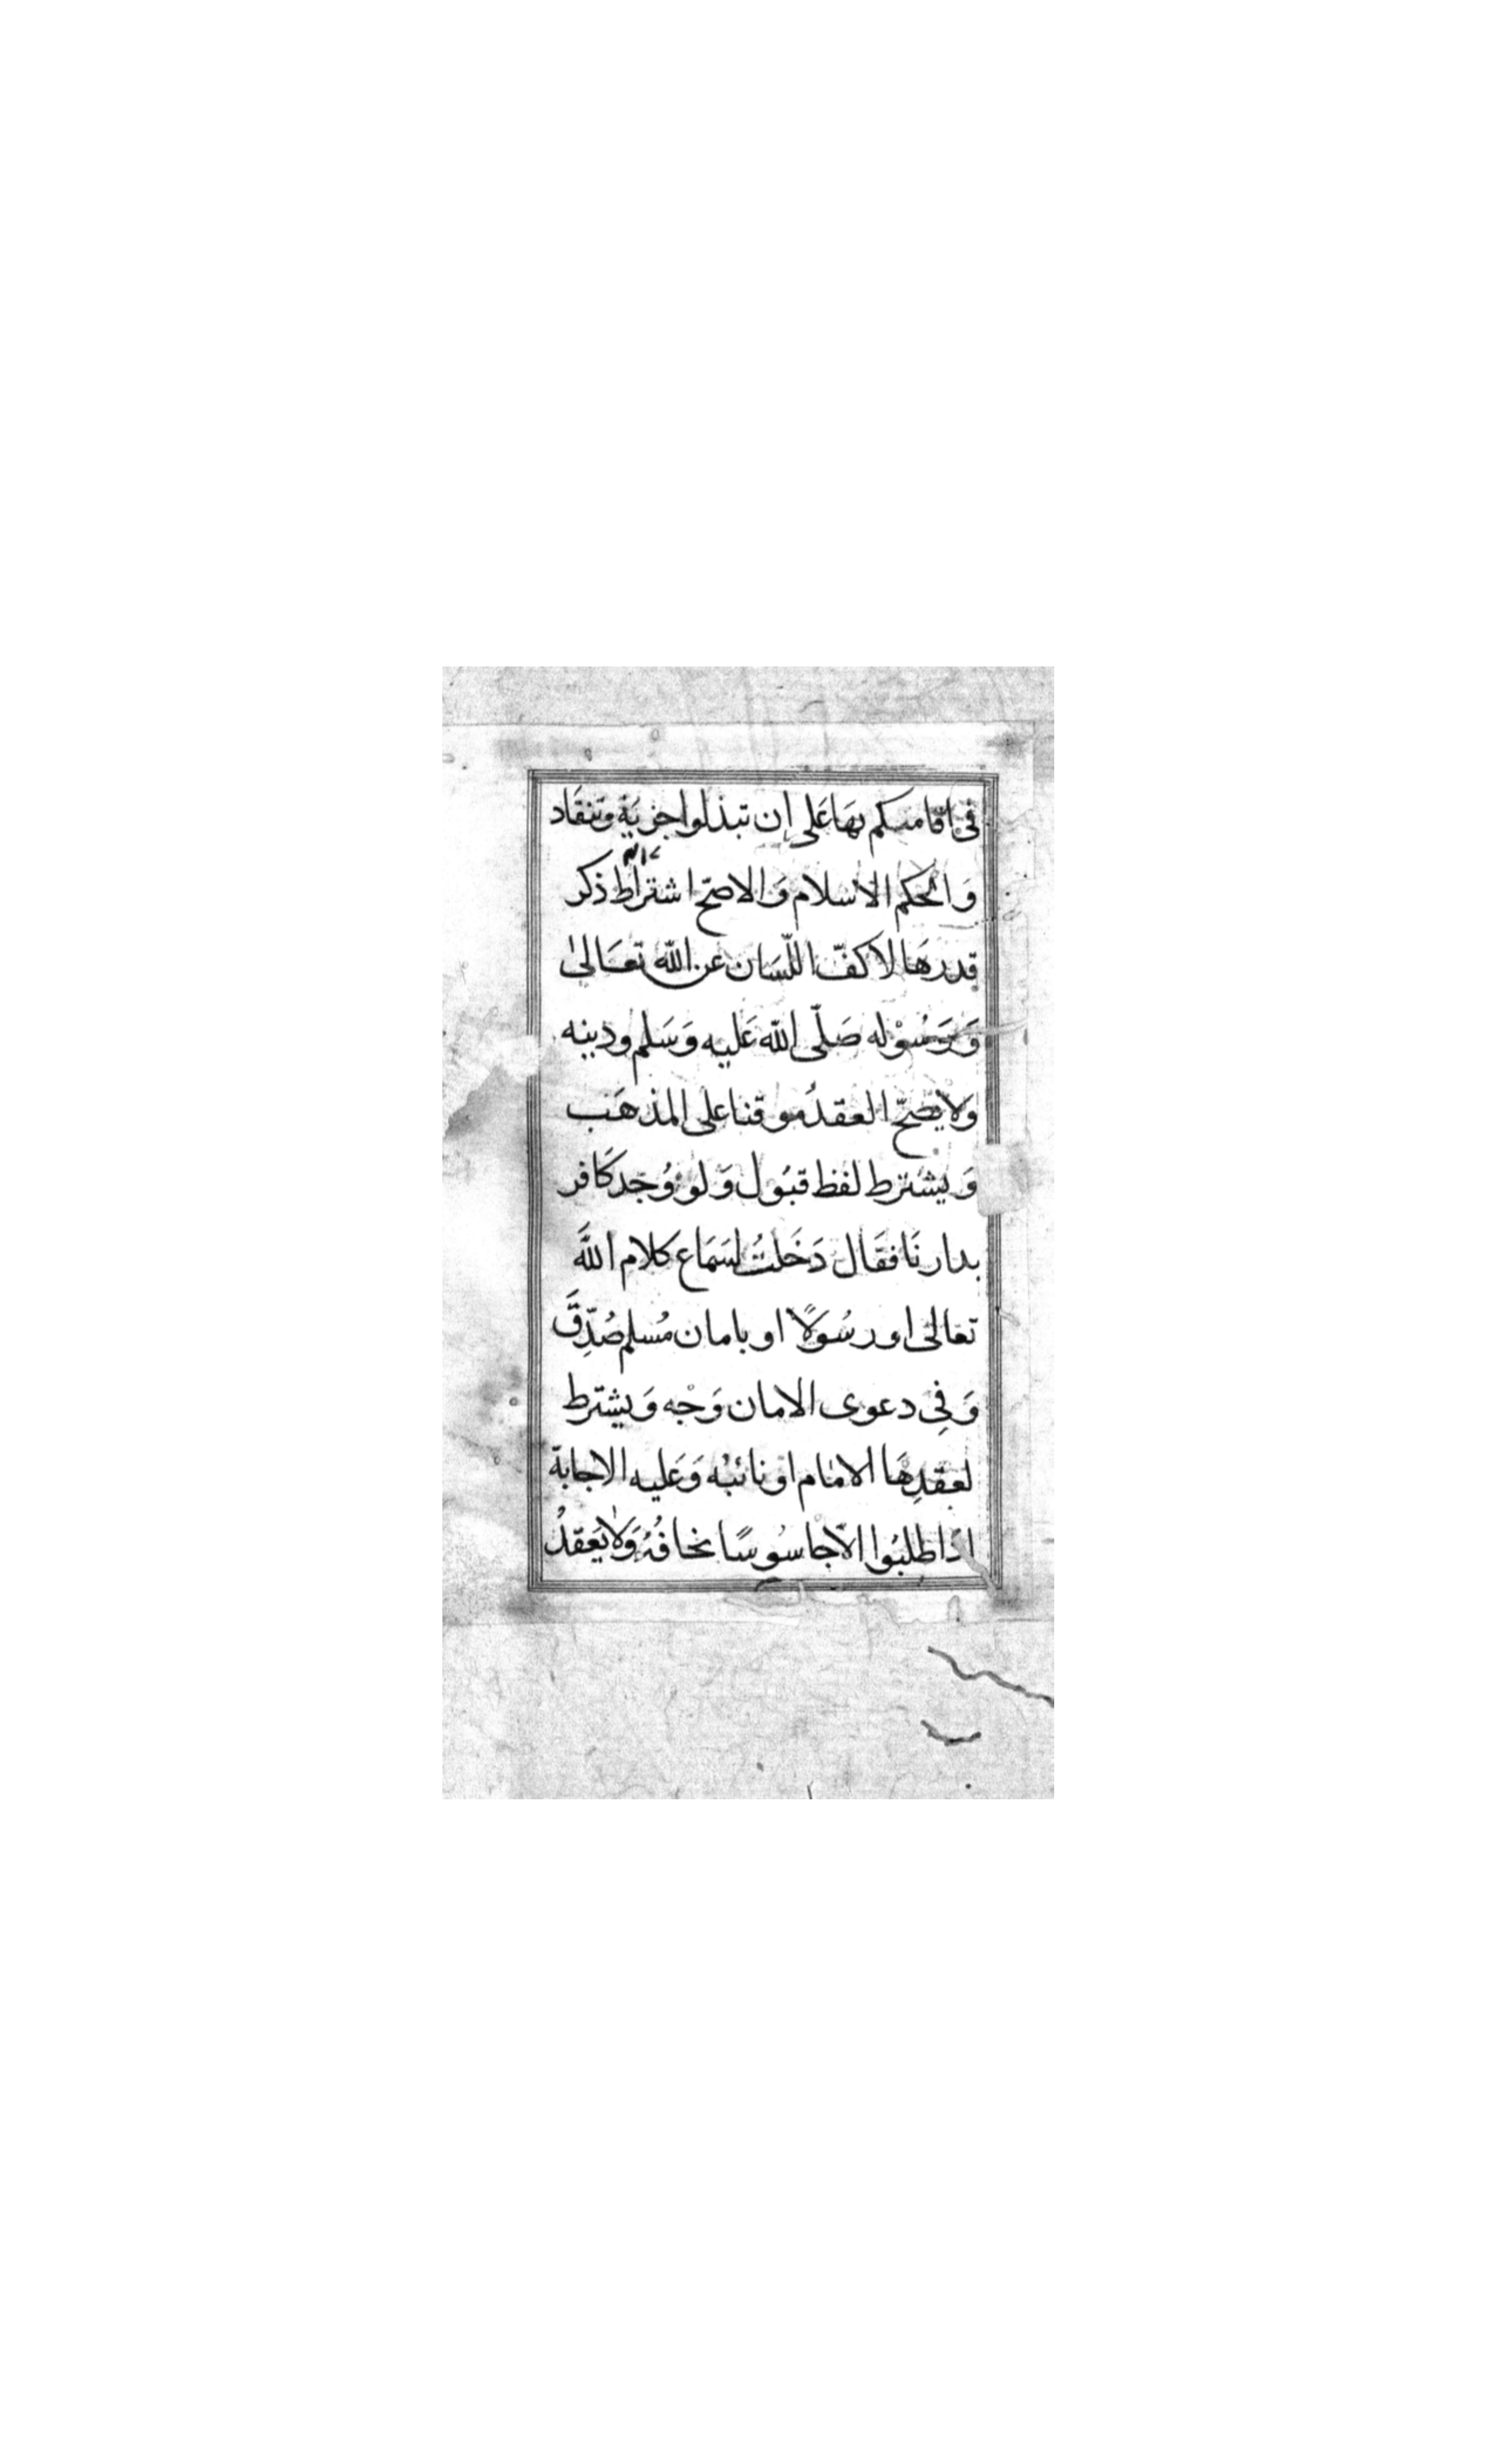 فى اقامتكم بها على إن تبذلوا جزية وتنقاد
وَ الحكم الاسلام وَالاصحّ اشتراط ذكر
قدرهَا لا كفّ اللّسَان عن الله تعَالىٰ
وَرَسُوْله صَلّى الله عَليه وَسَلم ودينه
ولا يصحّ العقدُ موقتا على المذهَب
وَيشترط لفظ قبُول وَلو وُجد كَافر
بدارنَا فقَال دَخَلتُ لسَمَاع كلام اللهَ
تعالى اورسُولاً او بامان مُسلم صُدِّقَ
وَفِى دعوى الامان وَجْه وَيشترط
لعقدِهَا الامام اونائبُه وَعَليه الاجابة
اذاطلبُوا الاّجاسُوسًا نخافُهُ وَلا يَعقدُ